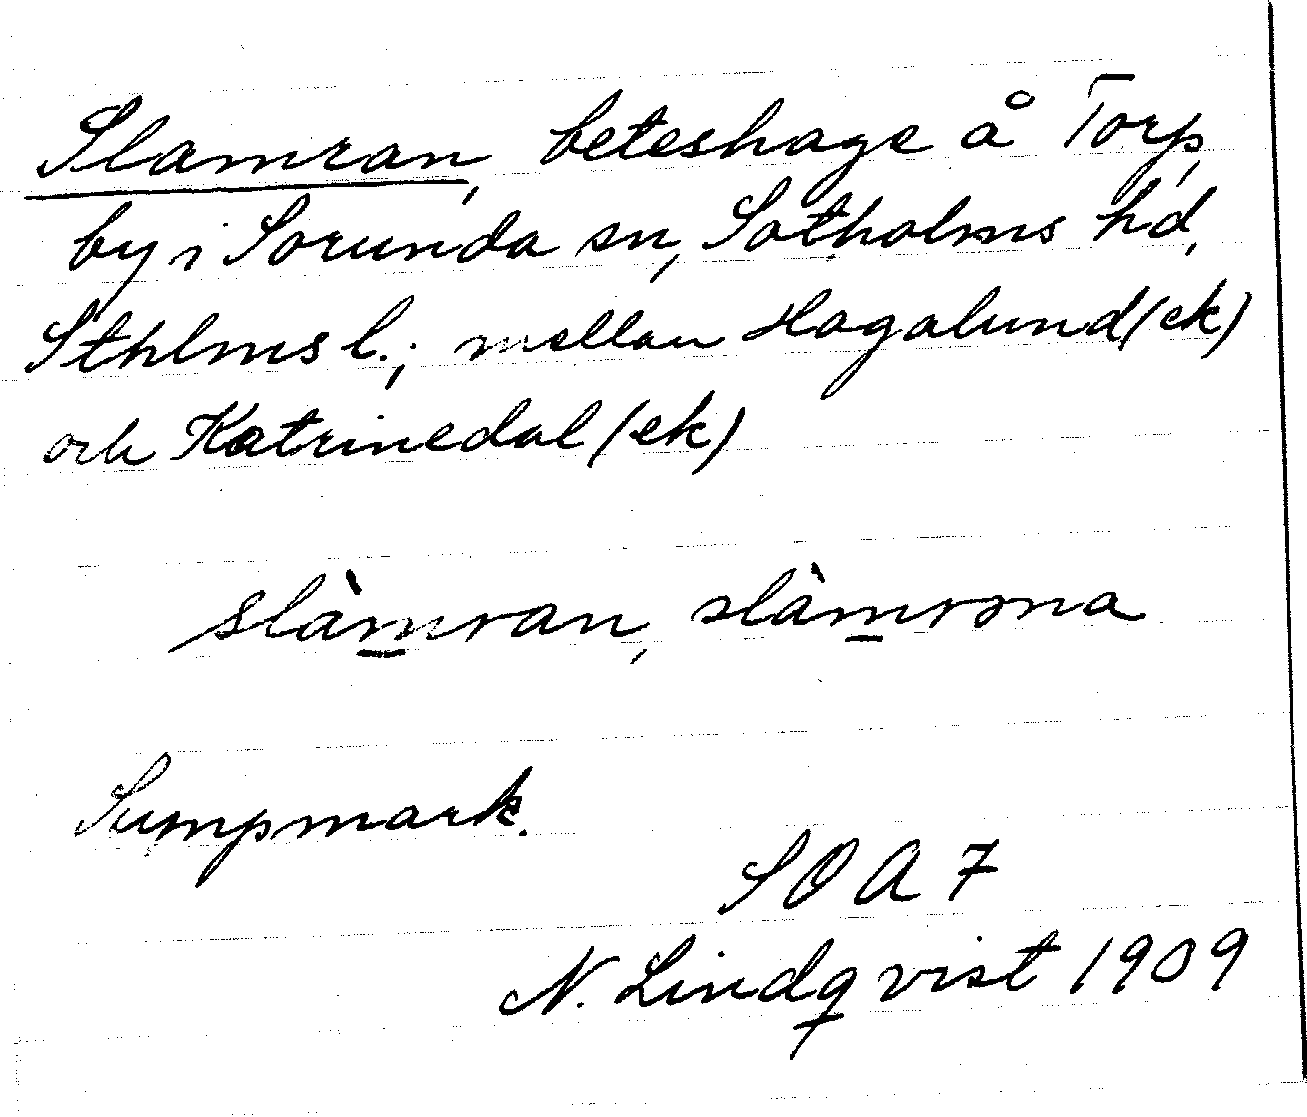 Slamran, beteshage å Torp,
by i Sorunda sn, Sotholms hd,
Sthlms l.; mellan Hagalund (ek)
och Katrinedal (ek)
slàm̲ran, slàm̲rɔna
Sumpmark.
SOA 7
N. Lindqvist 1909